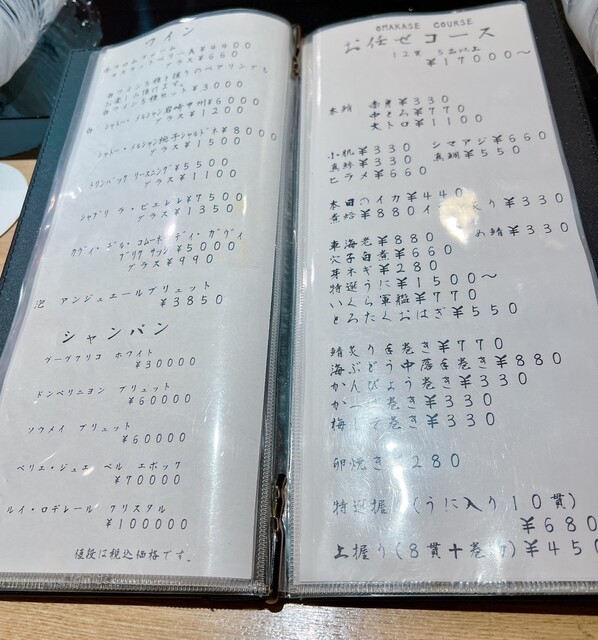 ワイン
¥4900
グラス¥660
¥3000
¥6000
グラス¥1200
¥8000
グラス¥1500
¥5500
グラス¥1100
シャブリ ラ・ピエレレ¥7500
グラス¥1350
¥5000
グラス¥990
泡 アンジュエールブリュット
¥3850
シャンパン
ヴーヴクリコ ホワイト
¥30000
ドンペリニヨン ブリュット
¥60000
ソウメイ ブリュット
¥60000
ペリエ・ジュエ ベル エポック
¥70000
ルイ・ロデレール クリスタル
¥100000
値段は税込価格です。
OMAKASE COURSE
お任せコース
12貫 5品以上
¥17000〜
本鮪 赤身¥330
中とろ¥770
大トロ¥1100
小肌¥330 シマアジ¥660
真鯵¥330 真鯛¥550
ヒラメ¥660
本日のイカ¥440
煮蛤¥880 ¥330
車海老¥880 め鯖¥330
穴子白煮¥660
芽ネギ¥280
特選うに¥1500〜
いくら軍艦¥770
とろたくおはぎ¥550
鯖炙り手巻き¥770
海ぶどう中落手巻き¥880
かんぴょう巻き¥330
巻き¥330
巻き¥330
卵焼き 280
特選握り(うに入り10貫)
¥680
上握り(8貫十巻 ¥450